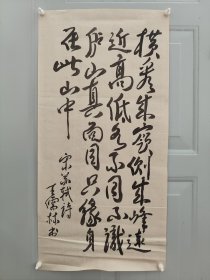 横看成嶺側成峰遠
近高低各不同不識
庐山真面目只缘身
在此山中
宋苏轼詩
王儒林书